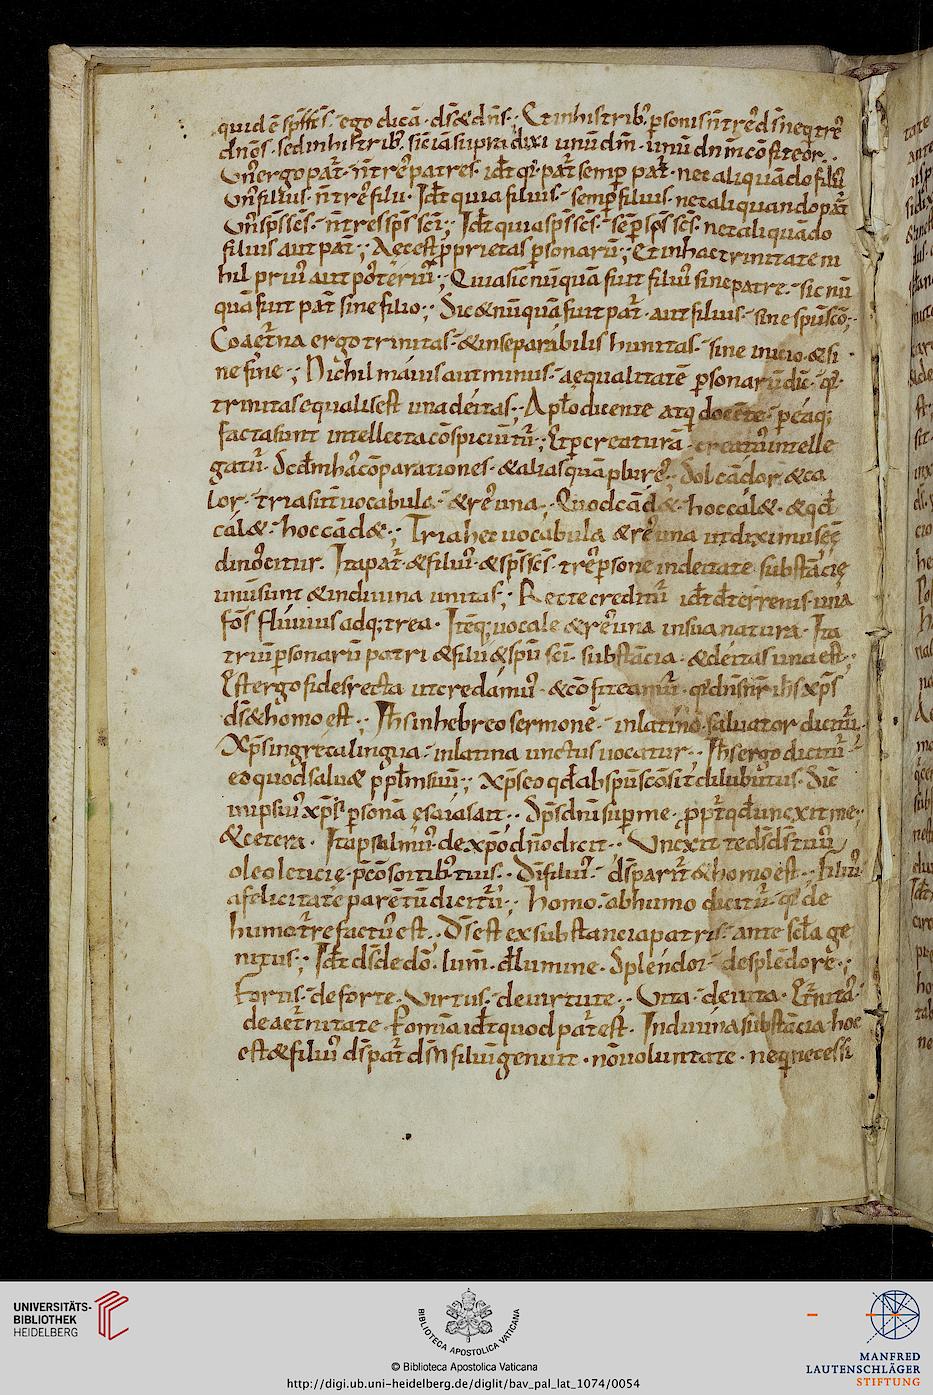 quid ē sp̄s sc̄s. ego dicā. ds̄ & dn̄s. Et in his trib; personis n̄ tres ds̄ neq; tres
dn̄os. sed in his trib; sic iā supra dixi unū dm̄. unū dn̄m cōfiteor.
Un' ergo pat̄. n̄ tres patres. id̄t q' pat̄ semp pat̄. nec aliquādo filiꝰ
Un' filius. n̄ tres filii. Id̄t quia filius. semp filius. nec aliquando pat̄
Un' sp̄s sc̄s. n̄ tres sp̄s sc̄i; Id̄t quia sp̄s sc̄s. sēp sp̄s sc̄s. nec aliquādo
filius aut pat̄; Aec est proprietas psonarū; Et in hac trinitate ni
hil priꝰ aut posteriꝰ; Quia sic nūquā fuit filiꝰ sine patre. sic nū
quā fuit pat̄ sine filio; Sic & nūquā fuit pat̄. aut filius. sine spū sc̄o;
Coaet̄na ergo trinitas. & inseparibilis hunitas. sine inicio. & si
ne fine; Nichil maius aut minus. aequalitatē psonarū dic̄. q'
trinitas equalis est una deitas; Apło dicente atq; docente. p ea q;
facta sunt intellecta cōspiciunt̄; Et p creaturā creator intelle
gat̄. Scdm has cōparationes. & alias quā plures. Sol candor. & ca
lor. tria sunt vocabula. & res una. Quod cād&. hoc cal&. & qd̄
cal&. hoc cād&; Tria hec vocabula & res una ut diximus ēē
dinoscitur. Ita pat̄. & filiꝰ. & sp̄s sc̄s. tres psone in deitate substācie
unū sunt & indiuina unitas; Recte credit̄ id̄t de terrenis. una
fōs fluuius adq; trea. Itēq; uocale & res una in sua natura. Ita
triū psonarū patri & filii & spū sc̄i. substācia. & deitas una est;
Est ergo fides recta ut credamus. & cōfiteamur. q' dn̄s nr̄ ih̄s xp̄s
ds̄ & homo est; Ih̄s in hebreo sermone. in latino. saluator dicit̄.
Xp̄s in greca lingua. in latina unctus uocatur; Ih̄s ergo dicit̄
eo quod salu& ppłm suū; Xp̄s eo qd̄ ab spū sc̄o sit dilibutus. Sic
in ipsiꝰ xp̄i psonā esaias ait. Sp̄s dn̄i sup me. ppt̄ qd̄ uncxit me.
& cetera. Ita psalmus. de xp̄o dn̄o dicit. Uncxit te ds̄ ds̄ tuus
oleo leticię. p cōsortib; tuis. Di filius. ds̄ parit̄ & homo est. filius
a felicitate parentū dicit̄; Homo. ab humo dicit̄. q' de
humo t̄re factus est. Ds̄ est ex substancia patris. ante scła ge
nitus; Id̄t ds̄ de dō. lum̄. de lumine. Splendor. de splēdore;
Fortis. de forte. Virtus. de uirtute. Vita. de uita. Et̄nitas.
de aet̄nitate. omīa id̄t quod pat̄ est. In diuina substācia hoc
est & filiꝰ ds̄ pat̄ dm̄ filiū genuit. nō uoluntate. neq; necessi
UNIVERSITÄTS-
BIBLIOTHEK
HEIDELBERG
BIBLIOTECA APOSTOLICA VATICANA
© Biblioteca Apostolica Vaticana
http://digi.ub.uni-heidelberg.de/diglit/bav_pal_lat_1074/0054
MANFRED
LAUTENSCHLÄGER
STIFTUNG